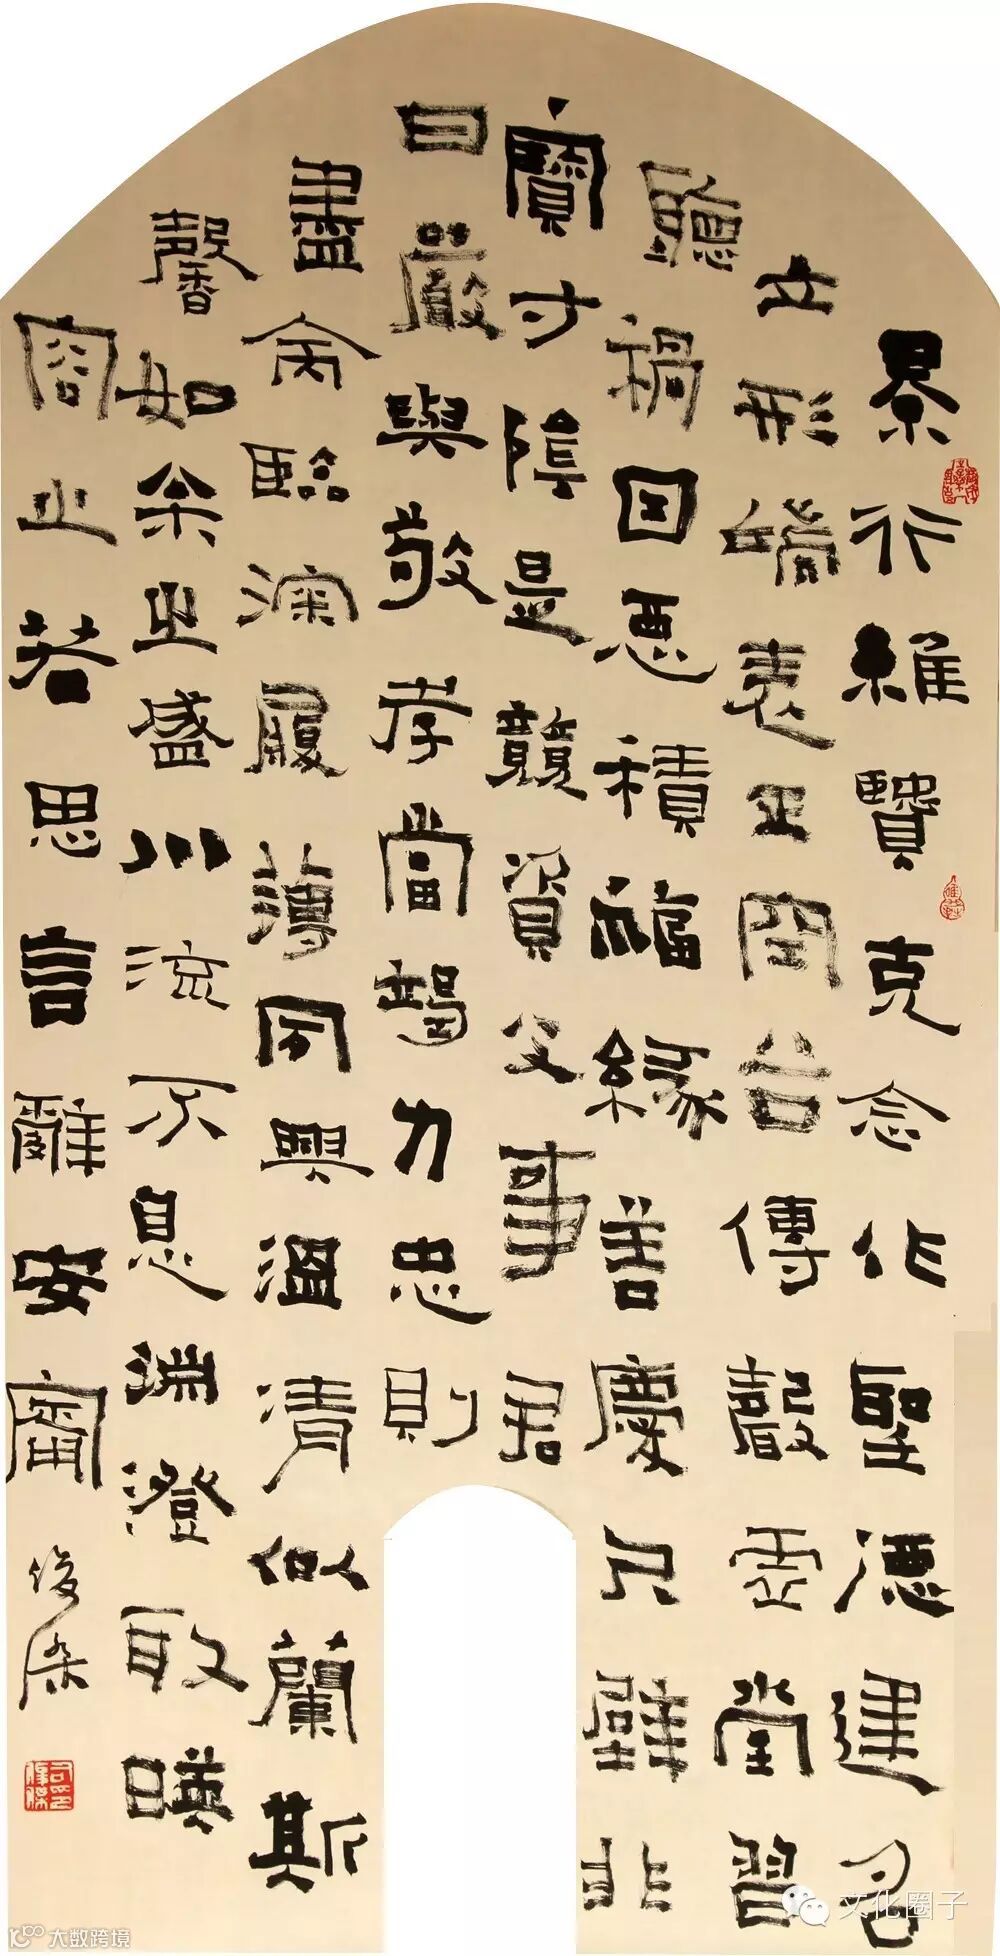 景行維賢克念作聖德建名
立形端表正空谷傳聲虛堂習
聽禍因惡積福緣善慶尺璧非
寶寸陰是競資父事君
曰嚴與敬孝當竭力忠則
盡命臨深履薄夙興溫清似蘭斯
馨如松之盛川流不息淵澄取暎
容止若思言辭安甯
文化圈子
大数跨境